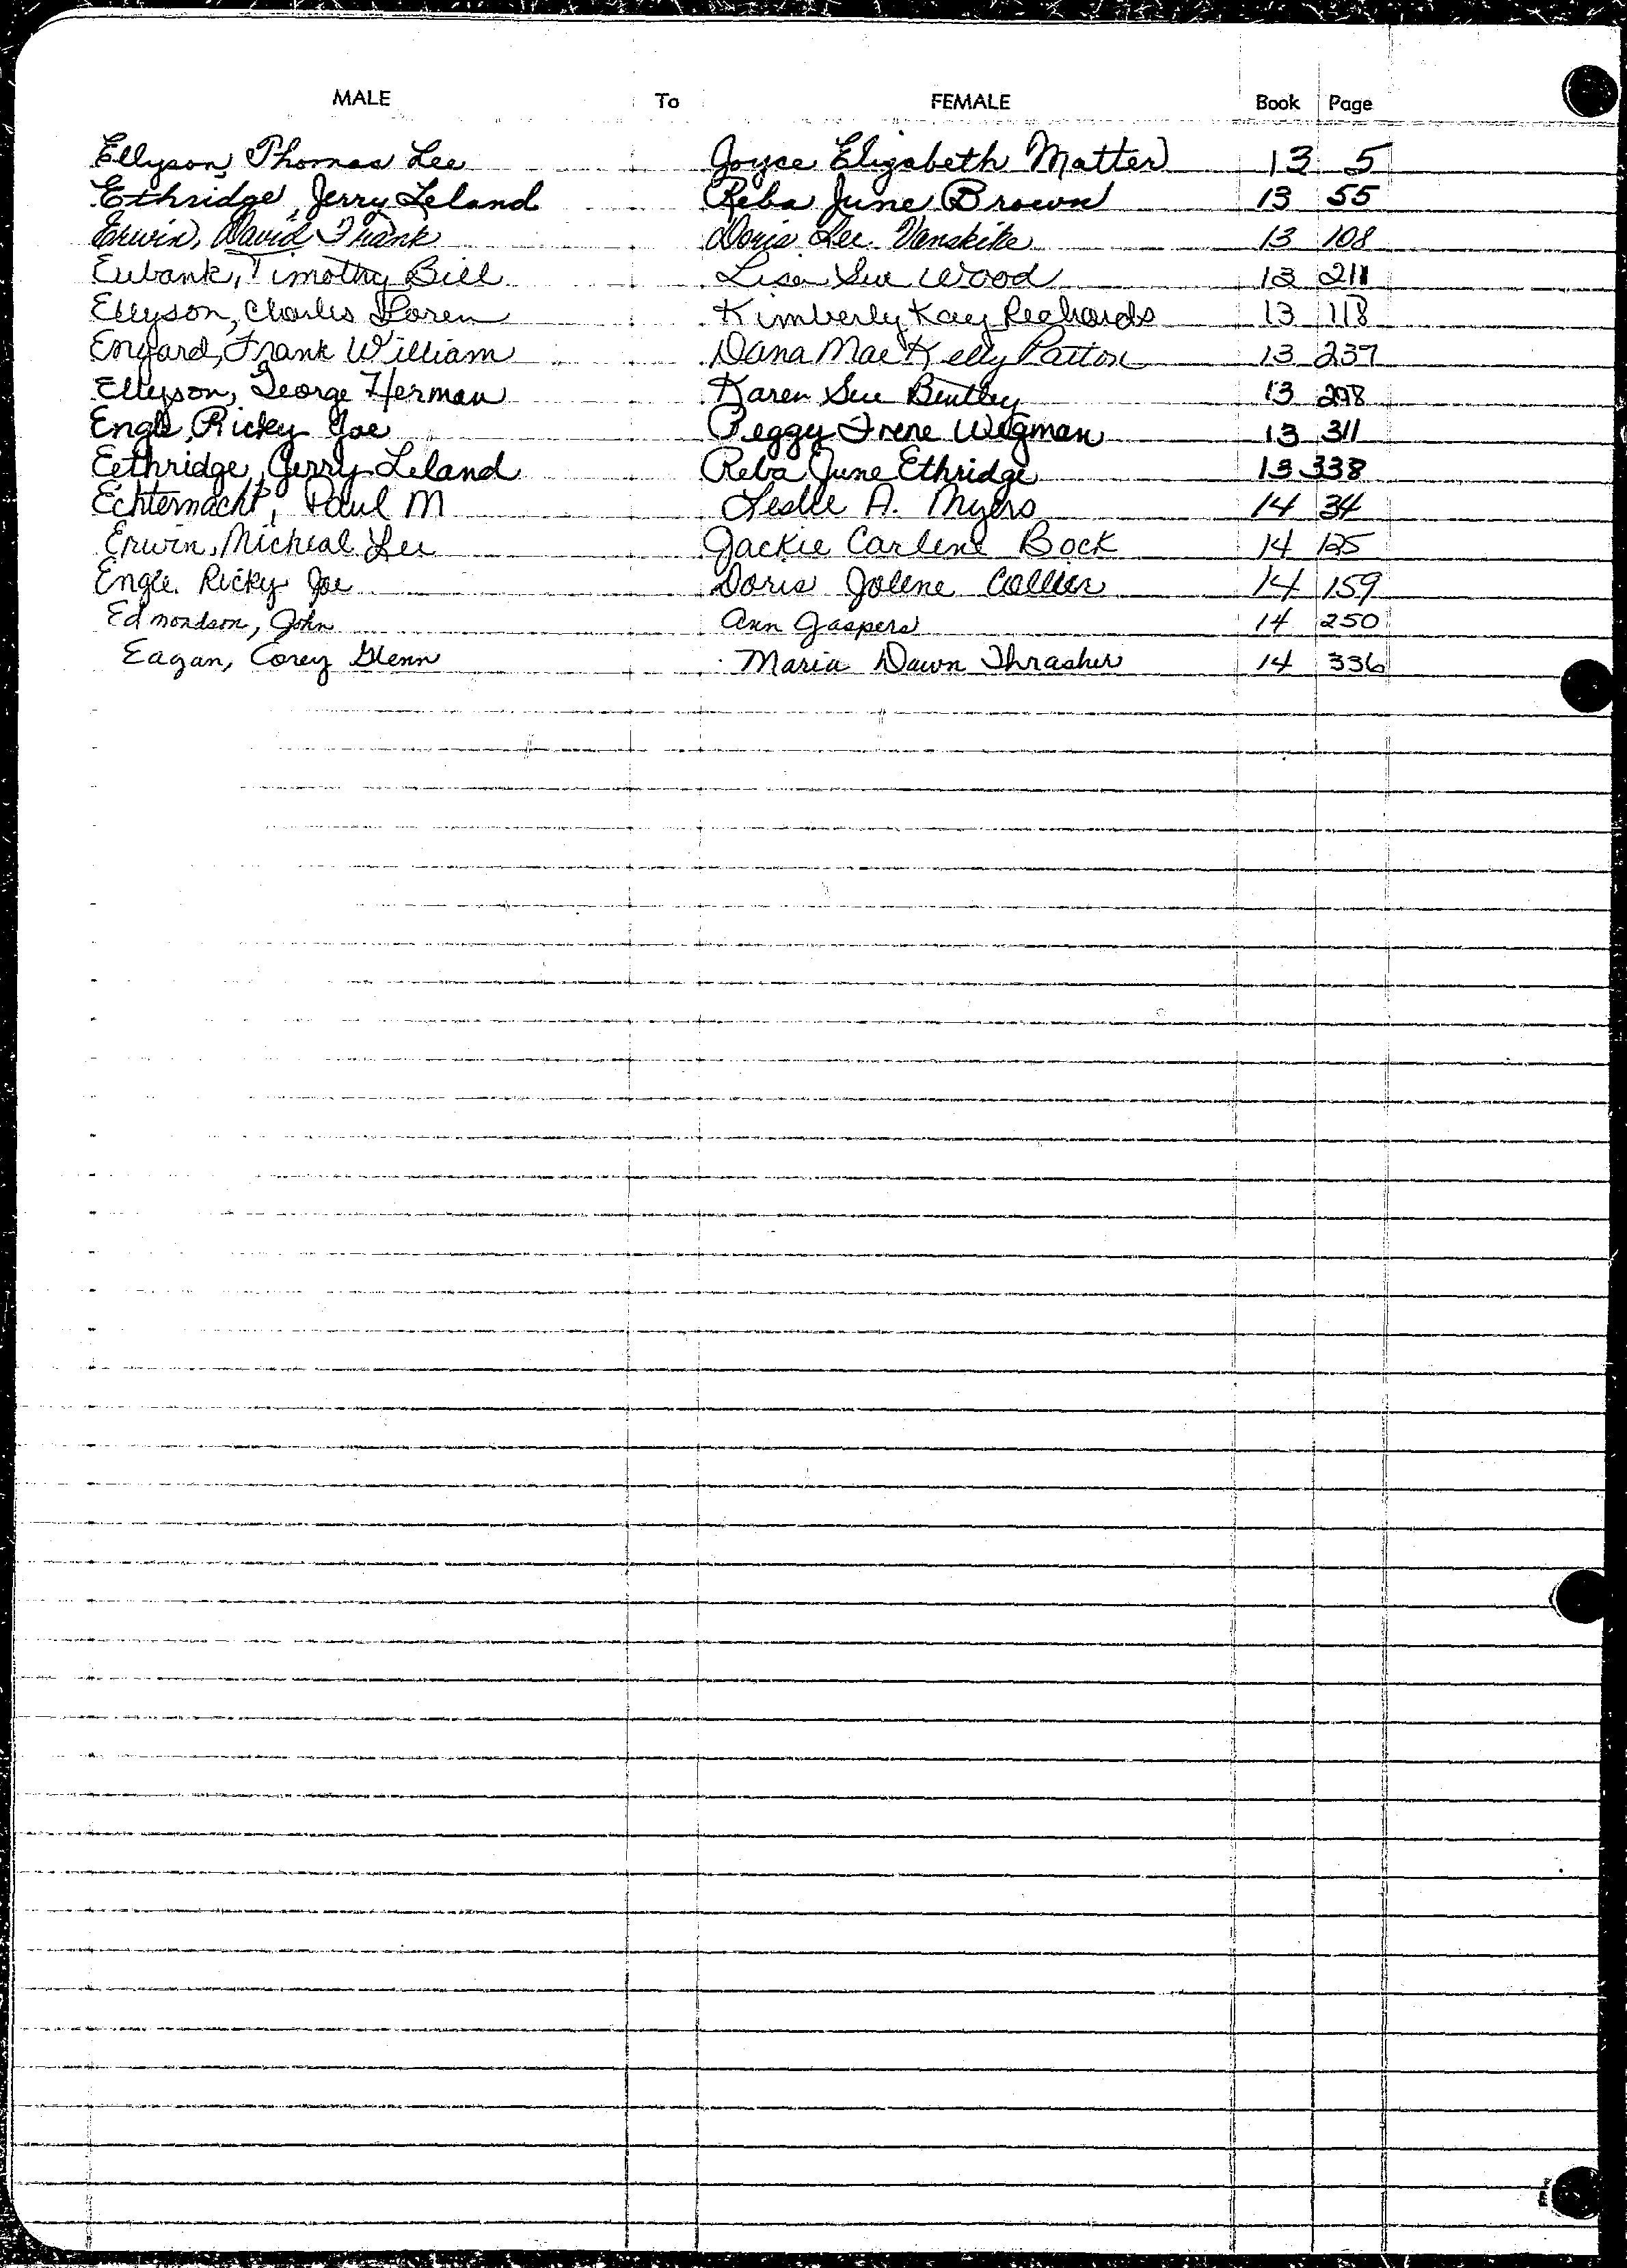 MALE To FEMALE Book Page
Ellyson, Thomas Lee Joyce Elizabeth Matter 13 5
Ethridge, Jerry Leland Reba June Brown 13 55
Erwin, David Frank Doris Lee Vanskike 13 108
Eubank, Timothy Bill Lisa Sue Wood 13 211
Ellyson, Charles Loren Kimberly Kay Richards 13 118
Engard, Frank William Dana Mae Kelly Patton 13 237
Ellyson, George Herman Karen Sue Bentley 13 298
Engle, Ricky Joe Peggy Irene Wigman 13 311
Eethridge, Jerry Leland Reba June Ethridge 13 338
Echternacht, Paul M Leslie A. Myers 14 34
Erwin, Micheal Lee Jackie Carlene Bock 14 125
Engle, Ricky Joe Doris Jolene Collier 14 159
Edmondson, John Ann Jaspers 14 250
Eagan, Corey Glenn Maria Dawn Thrasher 14 336